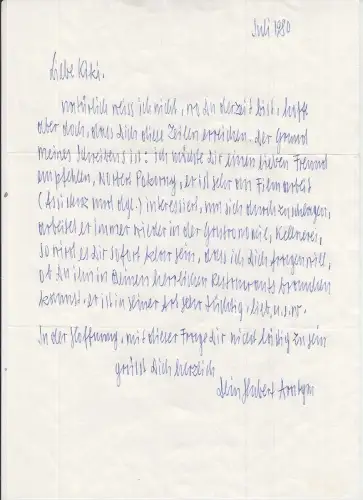 Juli 1980
Liebe Kiki.
natürlich weiss ich nicht, wo Du derzeit bist, hoffe
aber doch, dass Dich diese Zeilen erreichen. Der Grund
meines Schreibens ist: ich möchte Dir einen lieben Freund
empfehlen, Norbert Pokorny, er ist sehr an Filmarbeit
(Assistenz und dgl.) interessiert, um sich durchzuschlagen,
arbeitet er immer wieder in der Gastronomie, Kellnerei,
so wird es dir sofort klar sein, dass ich Dich fragen will,
ob Du ihn in Deinen herrlichen Restaurants brauchen
kannst. er ist in seiner Art sehr tüchtig, lieb, u.s.w.
In der Hoffnung, mit dieser Frage Dir nicht lästig zu sein
grüsst Dich herzlich
Dein Hubert